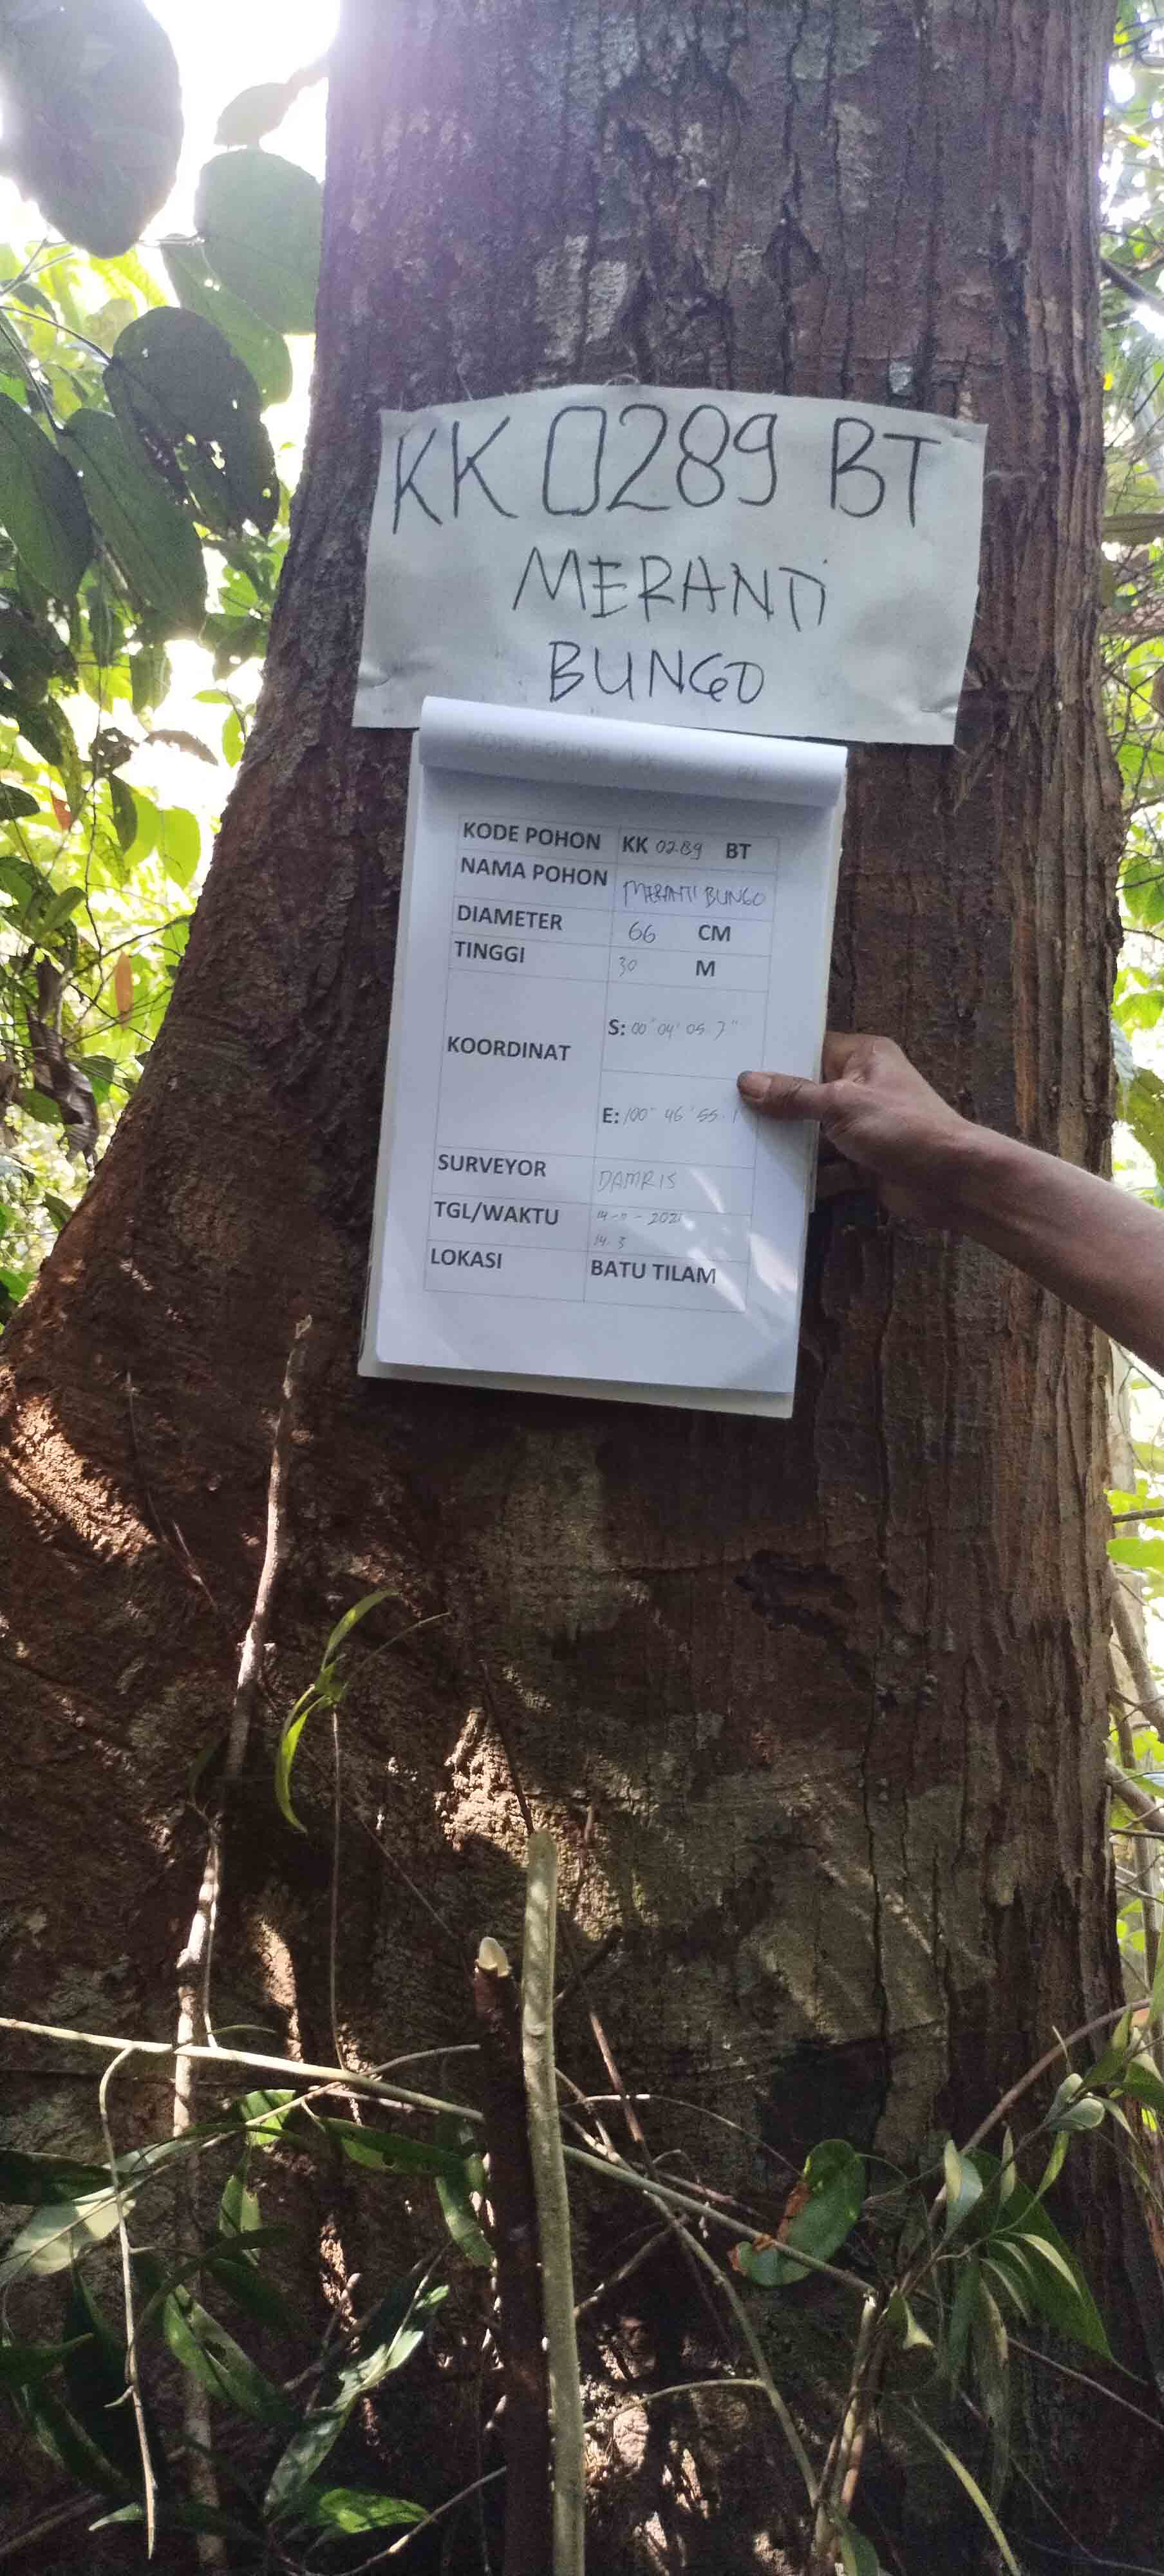 KK 0289 BT
MERANTi
BUNGO
KODE POHON KK 0289 BT
NAMA POHON MERANTI BUNGO
DIAMETER 66 CM
TINGGI 30 M
KOORDINAT
S: 00° 04' 05.7"
E: 100° 46' 55.1
SURVEYOR DAMRIS
TGL/WAKTU
LOKASI BATU TILAM